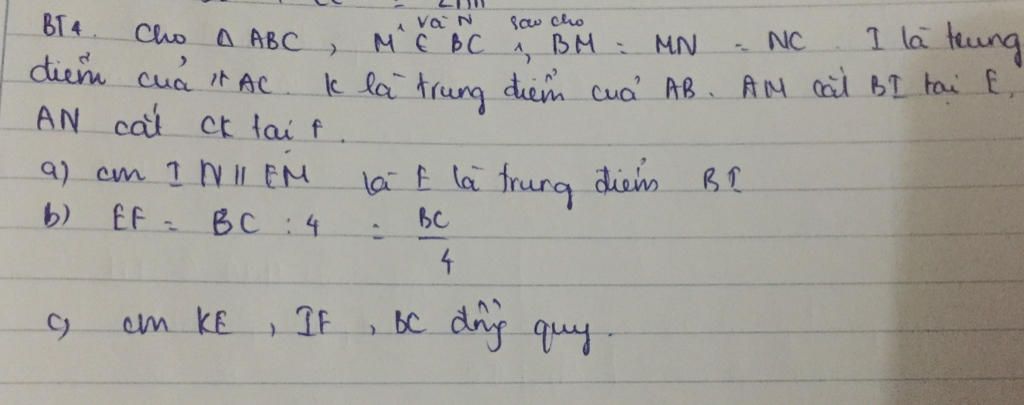 BT4. Cho Δ ABC, M và N ∈ BC sao cho, BM = MN = NC. I là trung
điểm của AC. K là trung điểm của AB. AM cắt BI tại E,
AN cắt CK tại F.
a) cm IN // EM là E là trung điểm BI
b) EF = BC : 4 = BC/4
c) cm KE, IF, BC đồng quy.